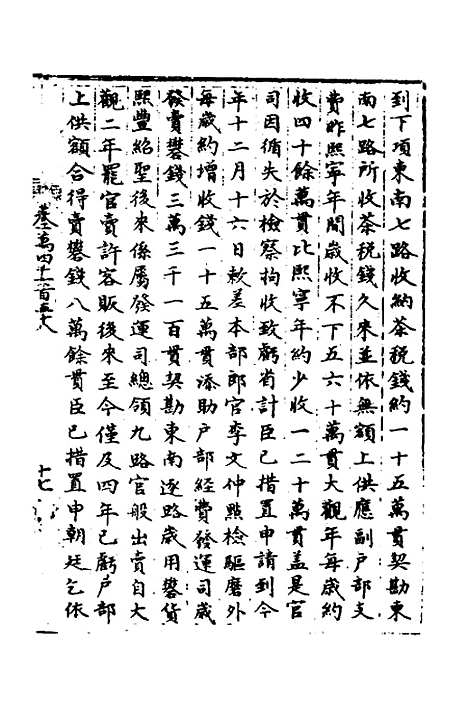 到下項東南七路收納茶税錢約一十五萬貫契勘東
南七路所收茶税錢久來並依無額上供應副户部支
費昨熙寧年間歲收不下五六十萬貫大觀年每歲約
收四十餘萬貫比熙寧年約少收一二十萬貫盖是官
司因循失於檢察拘收致虧省計臣已措置申請到今
年十二月十六日敕差本部郎官李文仲點檢驅磨外
每歲約增收錢一十五萬貫添助户部經費發運司歲
發賣礬錢三萬三千一百貫契勘東南逐路歲用礬貨
熙豐紹聖後來係屬發運司總領九路官般出賣自大
觀二年罷官賣許客販後來至今僅及四年已虧户部
上供額合得賣礬錢八萬餘貫臣已措置申朝廷乞依
十七